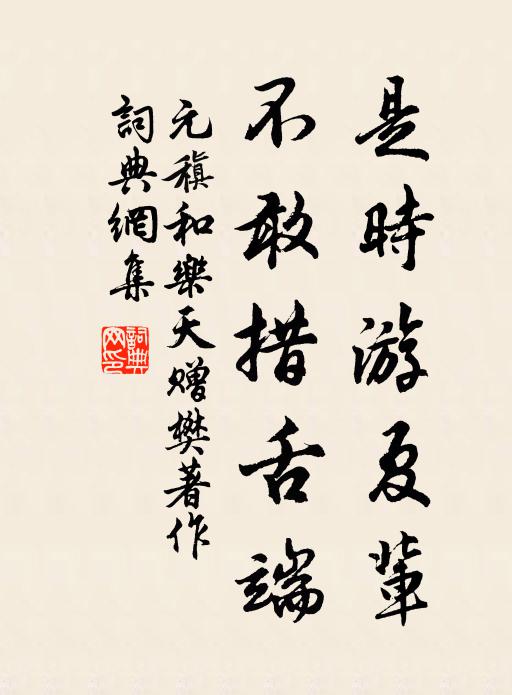 是時游夏輩
不敢措舌端
元稹和樂天贈樊著作
詞典網集
詞典网印